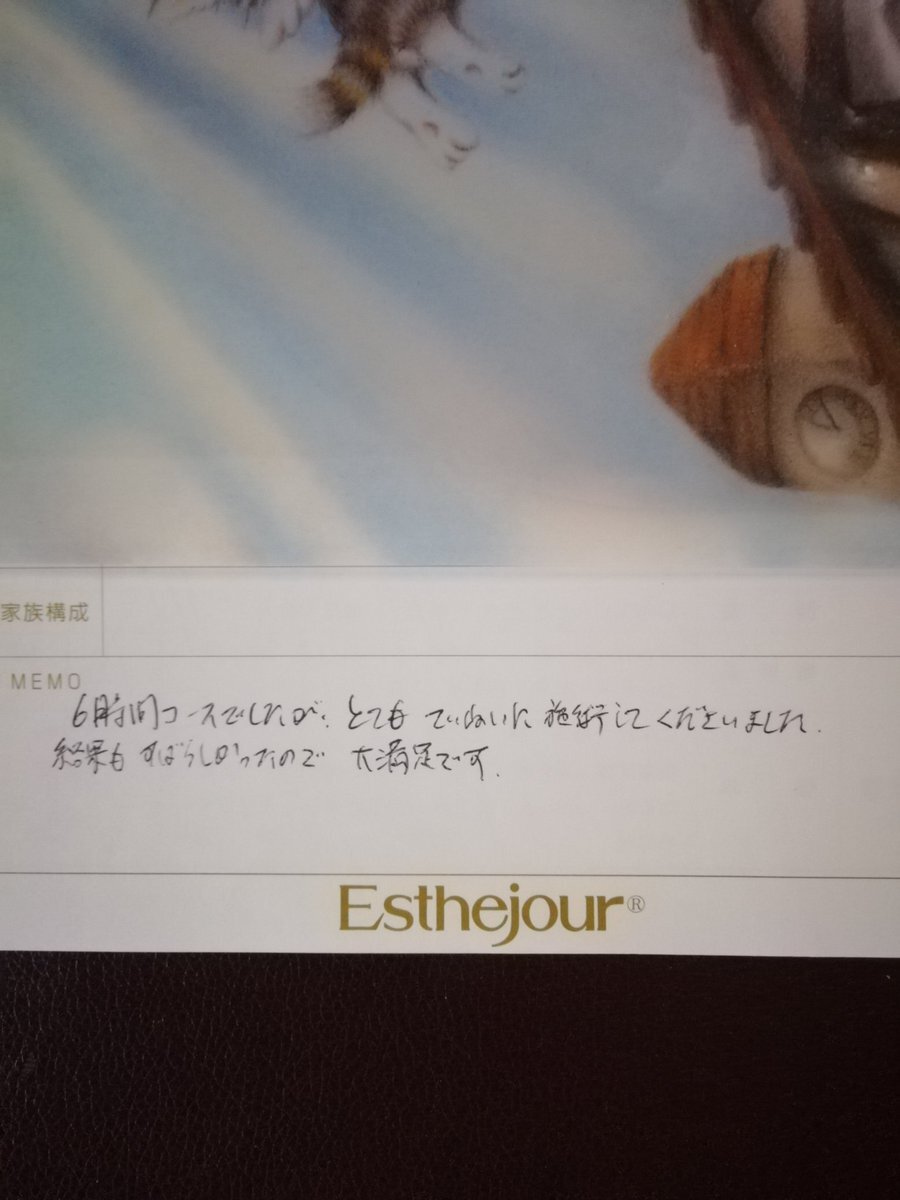 家族構成
MEMO
6時間コースでしたが、とても ていねいに 施術してくださいました.
結果も すばらしかったので 大満足です.
Esthejour®